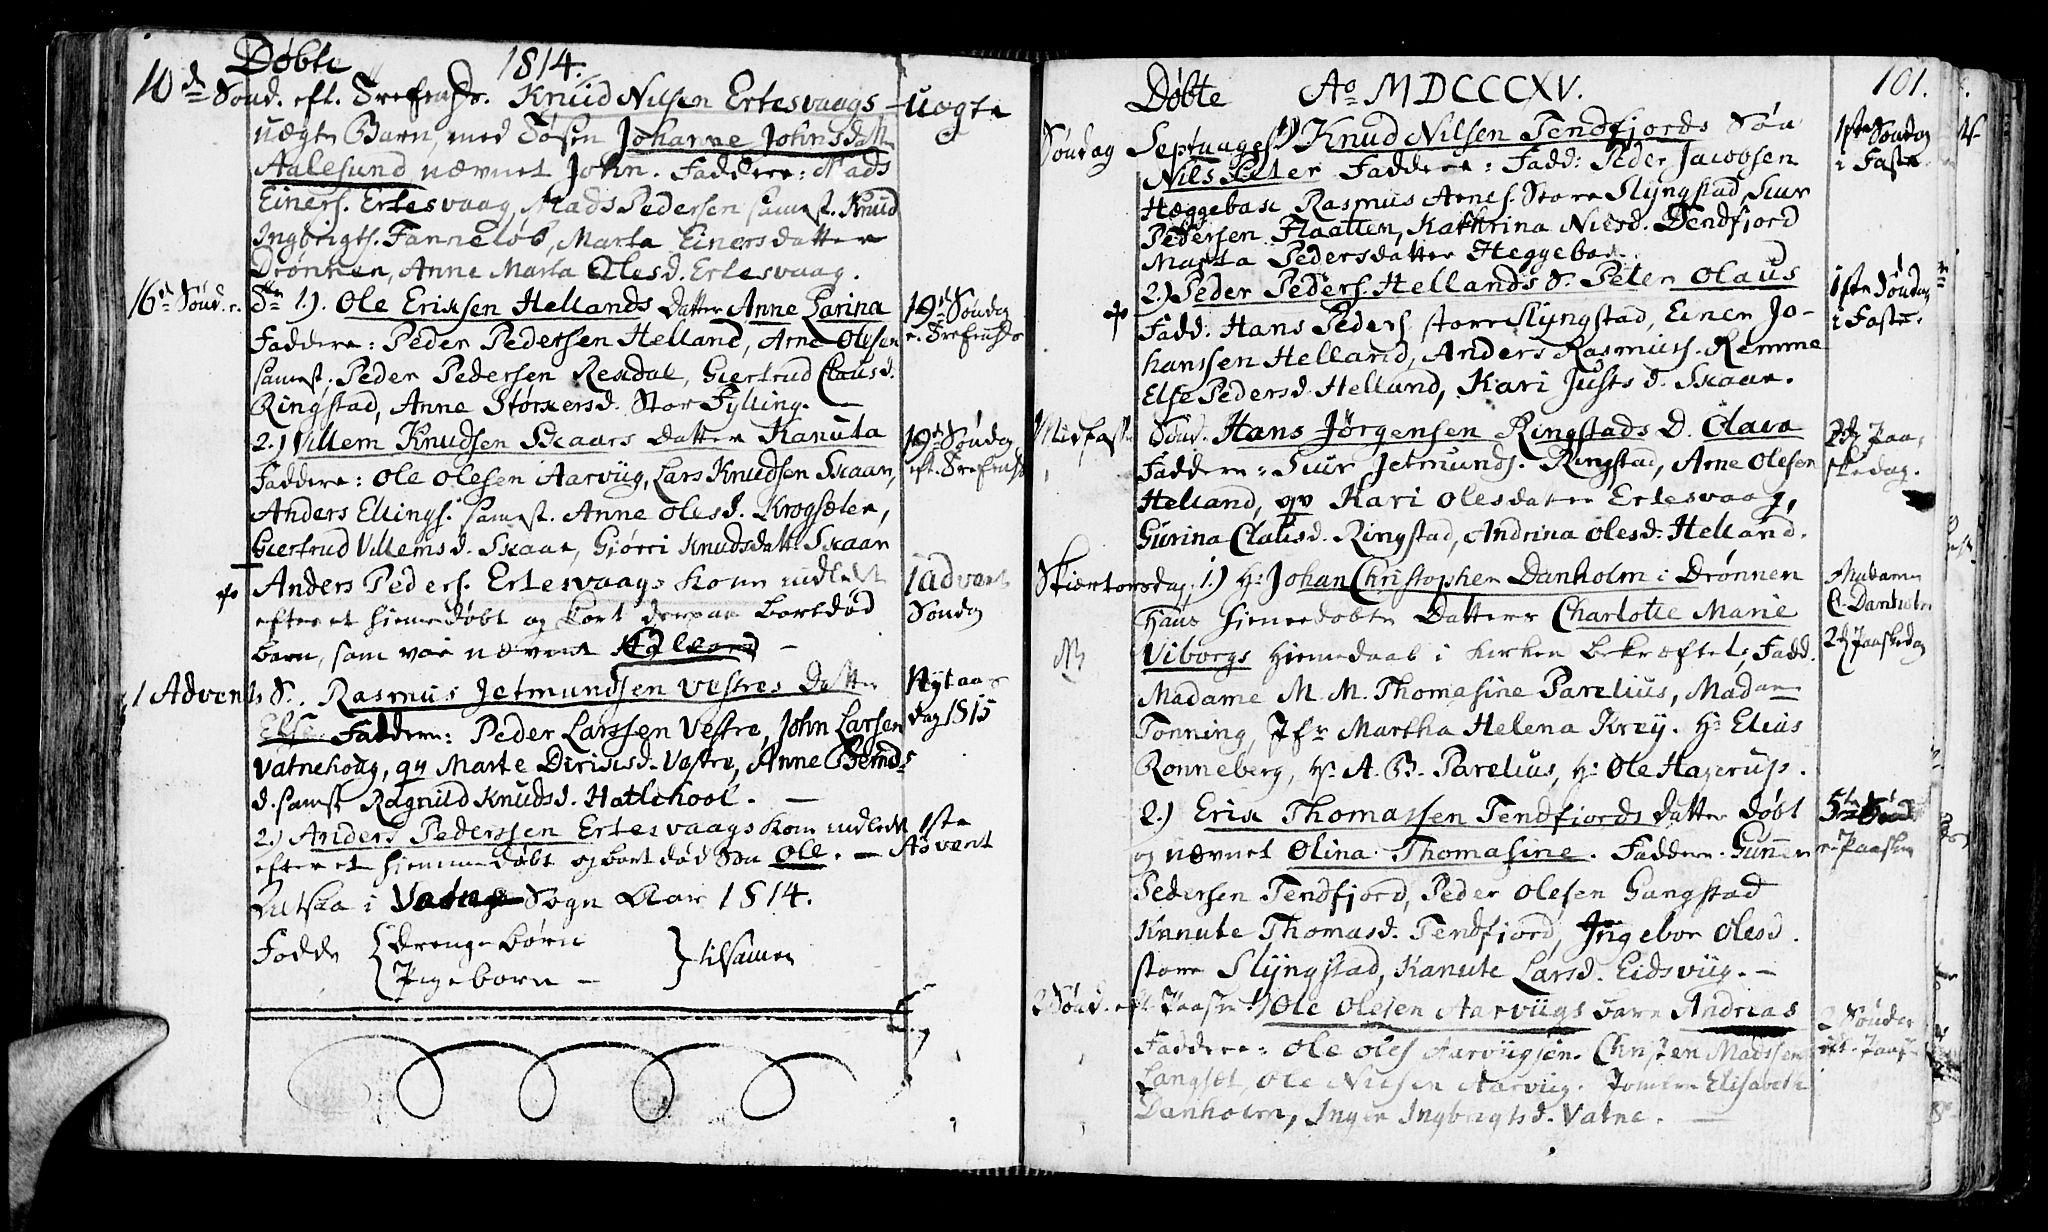 Døbte 1814.
10de Sønd. eft. Trefoldr. Knud Nilsen Ertesvaags
uægte Barn, med Tøsen Johanne Johnsdatter
Aalesund nævnet John. Faddere: Mads
Einers. Ertesvaag, Mads Pedersen samest. Knud
Ingbrigts. Tanneløb, Marta Einersdatter
Drønnen, Anne Marta Olesd. Ertesvaag.
uægte
16de Sønd. e. Tr. 1). Ole Eriksen Hellands Datter Anne Larina
Faddere: Peder Pedersen Helland, Arne Olesen
samest. Peder Pedersen Resdal, Giertrud Clausd.
Ringstad, Anne Størkersd. Stor Fylling.
19de Søndag
e. Trefoldr
2.) Villem Knudsen Skaars Datter Kanuta
Faddere: Ole Olesen Aarviig, Lars Knudsen Skaar,
Anders Ellings. samest. Anne Olesd. Krogsæter,
Giertrud Villemsd. Skaar, Giørri Knudsdatt. Skaar
19de Søndag
eft. Trefoldr
Anders Peders. Ertesvaags Kone indledt
efter et hiemedøbt og kort derpaa bortdød
barn, som var nævnet
1 advent
Søndag
1 Advents S. Rasmus Jetmundsen Vestres Datter
Else Faddere: Peder Larssen Vestre, John Larsen
Vatnehoug, qv Marte Diriksd. Vestre, Anne Bernds
d. samest Ragnild Knudsd. Hatlehool.
Nytaars
dag 1815
2.) Anders Pederssen Ertesvaags Kone indledt
efter et hiemmedøbt og bort død Søn Ole.
1ste
Advent
Altsaa i Vatne Sogn Aar 1814.
Fødde { Drengebørn
Pigebørn } tilsamen
101.
Døbte Ao MDCCCXV.
Søndag Septuages 1) Knud Nilsen Tendfjords Søn
Nils Peter Faddere: Fadd: Peder Jacobsen
Heggebak Rasmus Arnes. Store Slyngstad, Siur
Pedersen Flaatten, Kathrina Nilsd. Tendfjord
Marta Pedersdatter Heggebak.
1ste Søndag
i Faste.
2.) Peder Peders. Hellands S. Peter Olaus
Fadd. Hans Peders. store Slyngstad, Einer Jo-
hanssen Helland, Anders Rasmuss. Remme
Else Pedersd. Helland, Kari Justsd. Skaar.
1ste Søndag
i Faste.
Midfaste Sønd. Hans Jørgensen Ringstads D. Olava
Faddere: Siur Jetmunds. Ringstad, Arne Olesen
Helland, qv Kari Olesdatter Ertesvaag,
Gurina Clausd. Ringstad, Andrina Olesd. Helland.
2d Paa-
skedag.
Skiærtorsdag, 1.) Hr. Johan Christopher Danholm i Drønnen
Hans hiemedøbte Datters Charlotte Marie
Viborgs hiemedaab i Kirken bekræftet, Fadd.
Madame M. M. Thomasine Parelius, Madam
Tonning, Jfr Martha Helena Krey. Hr Elias
Rønneberg, Hr. A. B. Parelius, Hr. Ole Hagerup.
Madame
C. Danholm
2d Paaskedag
NB
2.) Erik Thomassen Tendfjords Datter døbt
og nævnet Olina Thomasine. Faddere: Gunner
Pedersen Tendfjord, Peder Olesen Gangstad
Knnute Thomasd. Tendfjord, Ingebor Olesd.
store Slyngstad, Kanute Larsd. Eidsviig.
5te Sønd
e. Paaske
2 Sønd. eft Paaske 1) Ole Olesen Aarviigs barn Andreas
Faddere: Ole Oles Aarviigsen. Christen Madssen
Langset, Ole Nilsen Aarviig. Jomfru Elisabeth
Danholm, Inger Ingbrigtsd. Vatne.
2 Søndag
eft. Paaske